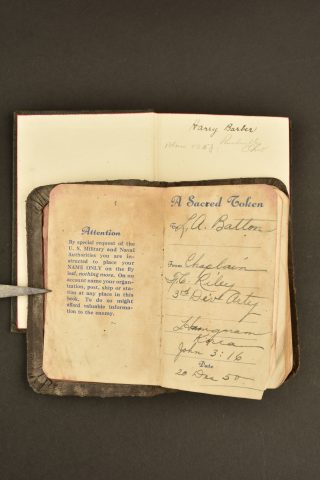 Harry Barber
A Sacred Token
To L. A. Batton
From Chaplain
Riley
3rd Div Arty
Hungnam
Korea
John 3:16
Date
20 Dec 50
Attention
By special request of the
U. S. Military and Naval
Authorities you are in-
structed to place your
NAME ONLY on the fly
leaf, nothing more. On no
account name your organi-
zation, post, ship or sta-
tion at any place in this
book. To do so might
afford valuable informa-
tion to the enemy.